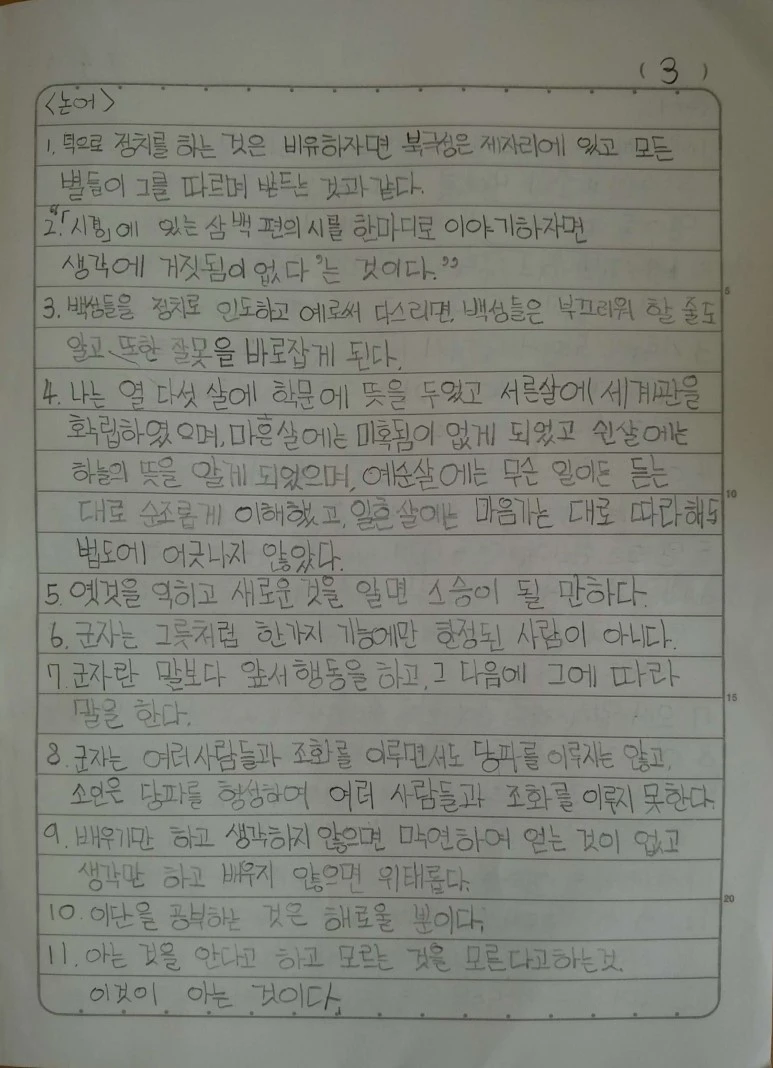 (3)
<논어>
1. 덕으로 정치를 하는 것은 비유하자면 북극성은 제자리에 있고 모든
별들이 그를 따르며 받드는 것과 같다.
2. "「시경」에 있는 삼백 편의 시를 한마디로 이야기하자면
생각에 거짓됨이 없다'는 것이다."
3. 백성들을 정치로 인도하고 예로써 다스리면, 백성들은 부끄러워 할 줄도
5
알고, 또한 잘못을 바로잡게 된다.
4. 나는 열 다섯 살에 학문에 뜻을 두었고 서른살에 세계관을
확립하였으며, 마흔살에는 미혹됨이 없게 되었고 쉰살에는
하늘의 뜻을 알게 되었으며, 예순살에는 무슨 일이든 듣는
10
대로 순조롭게 이해했고, 일흔살에는 마음가는 대로 따라해도
법도에 어긋나지 않았다.
5. 옛것을 익히고 새로운 것을 알면 스승이 될 만하다.
6. 군자는 그릇처럼 한가지 기능에만 한정된 사람이 아니다.
7. 군자란 말보다 앞서 행동을 하고, 그 다음에 그에 따라
15
말을 한다.
8. 군자는 여러사람들과 조화를 이루면서도 당파를 이루지는 않고,
소인은 당파를 형성하여 여러 사람들과 조화를 이루지 못한다.
9. 배우기만 하고 생각하지 않으면 막연하여 얻는 것이 없고
생각만 하고 배우지 않으면 위태롭다.
20
10. 이단을 공부하는 것은 해로울 뿐이다.
11. 아는 것을 안다고 하고 모르는 것을 모른다고하는것.
이것이 아는 것이다.